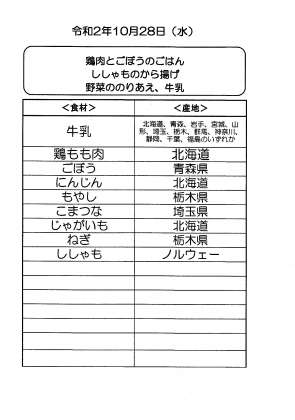 令和2年10月28日（水）
鶏肉とごぼうのごはん
ししゃものから揚げ
野菜ののりあえ、牛乳
＜食材＞ ＜産地＞
牛乳 北海道、青森、岩手、宮城、山
形、埼玉、栃木、群馬、神奈川、
静岡、千葉、福島のいずれか
鶏もも肉 北海道
ごぼう 青森県
にんじん 北海道
もやし 栃木県
こまつな 埼玉県
じゃがいも 北海道
ねぎ 栃木県
ししゃも ノルウェー